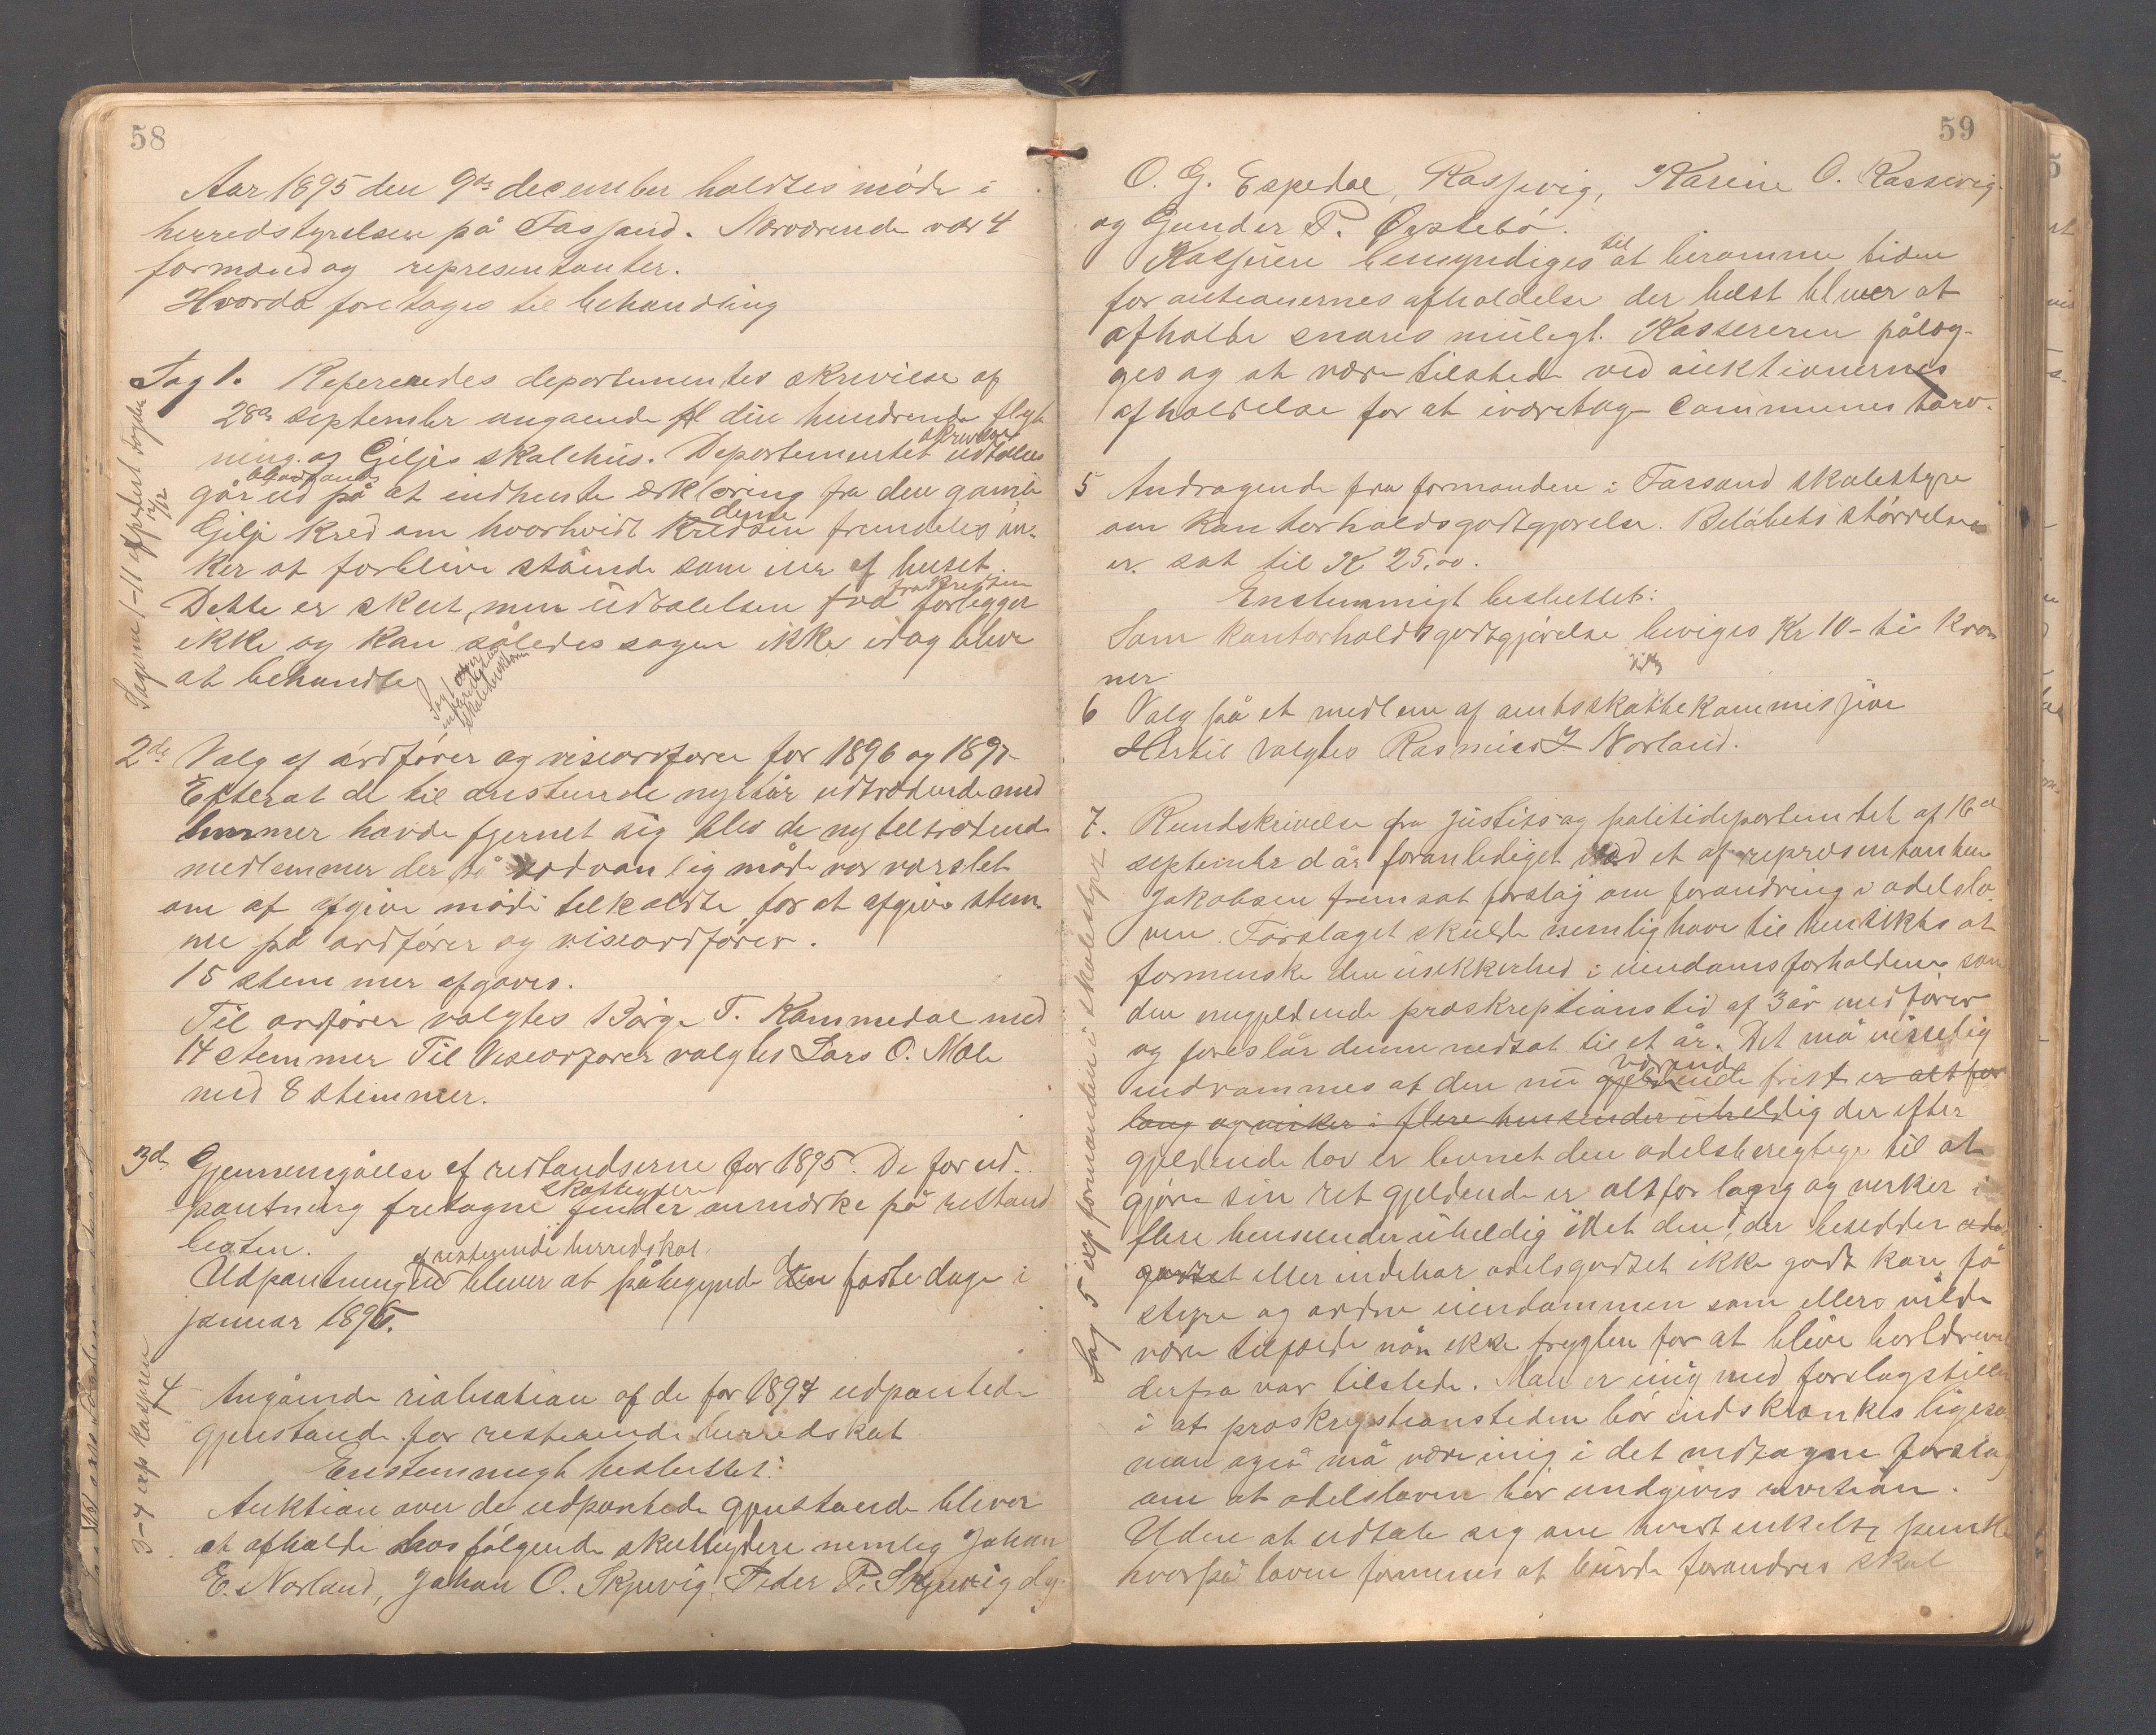 58
Aar 1895 den 9de december holdtes møde i
herredstyrelsen på Fasjand. Nærværende var 4
formænd og representanter.
Hvorda foretoges til behandling
Sag 1. Refereredes departementes skrivelse af
28de september angaaende den
ning og Giljes skolehus. Departementet udtales
skrivelse
går ud på at indhente erklæring fra den gamle
Gilje kred om hvorhvidt kredsen fremdeles øn-
denne
ker at forblive stående som eier af huset.
Dette er skeet, men udtalelsen fra forligger
fra kredsen
ikke og kan således sagen ikke idag blive
at behandle
2de Valg af ordfører og viseordfører for 1896 og 1897
Efterat de til anstundende nytår udtrædende med
lemmer havde fjernet sig blev de nytiltrædende
medlemmer der på sedvanlig måde var varslet
om at afgive møde tilkaldte for at afgive stem
me på ordfører og viseordfører.
15 stemmer afgaves.
Til ordfører valgtes Børge T. Kommedal med
14 stemmer Til Viseordfører valgtes Lars O. Mæle
med 8 stemmer.
3de Gjennemgåelse af restandserne for 1895. De for ud-
pantning fretagne finder anmærke på restand
skatteydere
listen.
af resterende herredskat
Udpantningen bliver at påbegynde den første dage i
januar 1896.
4 Angående rialisation af de for 1894 udpantede
gjenstande for resterende herredskat
Enstemmigt besluttet:
Auktion over de udpantede gjenstande bliver
at afholde hos følgende skatteydere nemlig Johan
E. Norland, Johan O. Skjævig, Peder P. Skjævig
Sagerne 1-11 expederet 12/12
3-4 exp kasseren
59
O. G. Espedal, Rasjevig, Karine O. Rassevig
og Gunder P. Østebø.
Kasjeren bemyndiges til at beramme tiden
for auktionernes afholdelse der helst bliver at
afholde snares muligt. Kassereren pålæg-
ges og at være tilstede ved auktionernes
afholdelse for at iværetage Communes tarv.
5 Andragende fra formanden i Fassand skolestyre
om Kontorholdsgodtgjørelse. Beløbets størrelse
er sat til K 25,00.
Enstemmigt besluttet:
Som kontorholdsgodtgjørelse beviges Kr 10 - ti kro
ner
6 Valg på et medlem af amtsskattekommisjon
Hertil valgtes Rasmus J Norland.
7. Rundskrivelse fra justits og politidepartemtet af 16de
september d år foranlediget ved et af representanten
Jakobsen fremsat forslag om forandring i odelslo
ven. Forslaget skulde nemlig have til hensikts at
forminske den usikkerhed i eiendomsforholdene som
den nugjeldende præskreptionstid af 3 år medfører
og foreslår denne nedsat til et år. Det må visselig
indrømmes at den nu gjeldende frist er alt for
værende
lang og virker i flere hensender uheldig der efter
gjeldende lov er levnet den odelsberegtige til at
gjøre sin ret gjeldende er altfor lang og virker i
flere hensender uheldig idet den, der besedder odels
godset eller indehar odelsgodset ikke godt kan få
styre og ordne eiendommen som ellers vilde
være tilfælde når ikke frygten for at blive bortdrevet
derfra var tilstede. Man er enig med forslagstilleren
i at præskreptionstiden bør indskrænkes ligesom
man også må være enig i det medtagne forslag
om at odelsloven bør undgives revision.
Uden at udtale sig om hvert enkelte punkt
hvorpå loven formenes at burde forandres skal
Sag 5 exp formanden i skolestyre